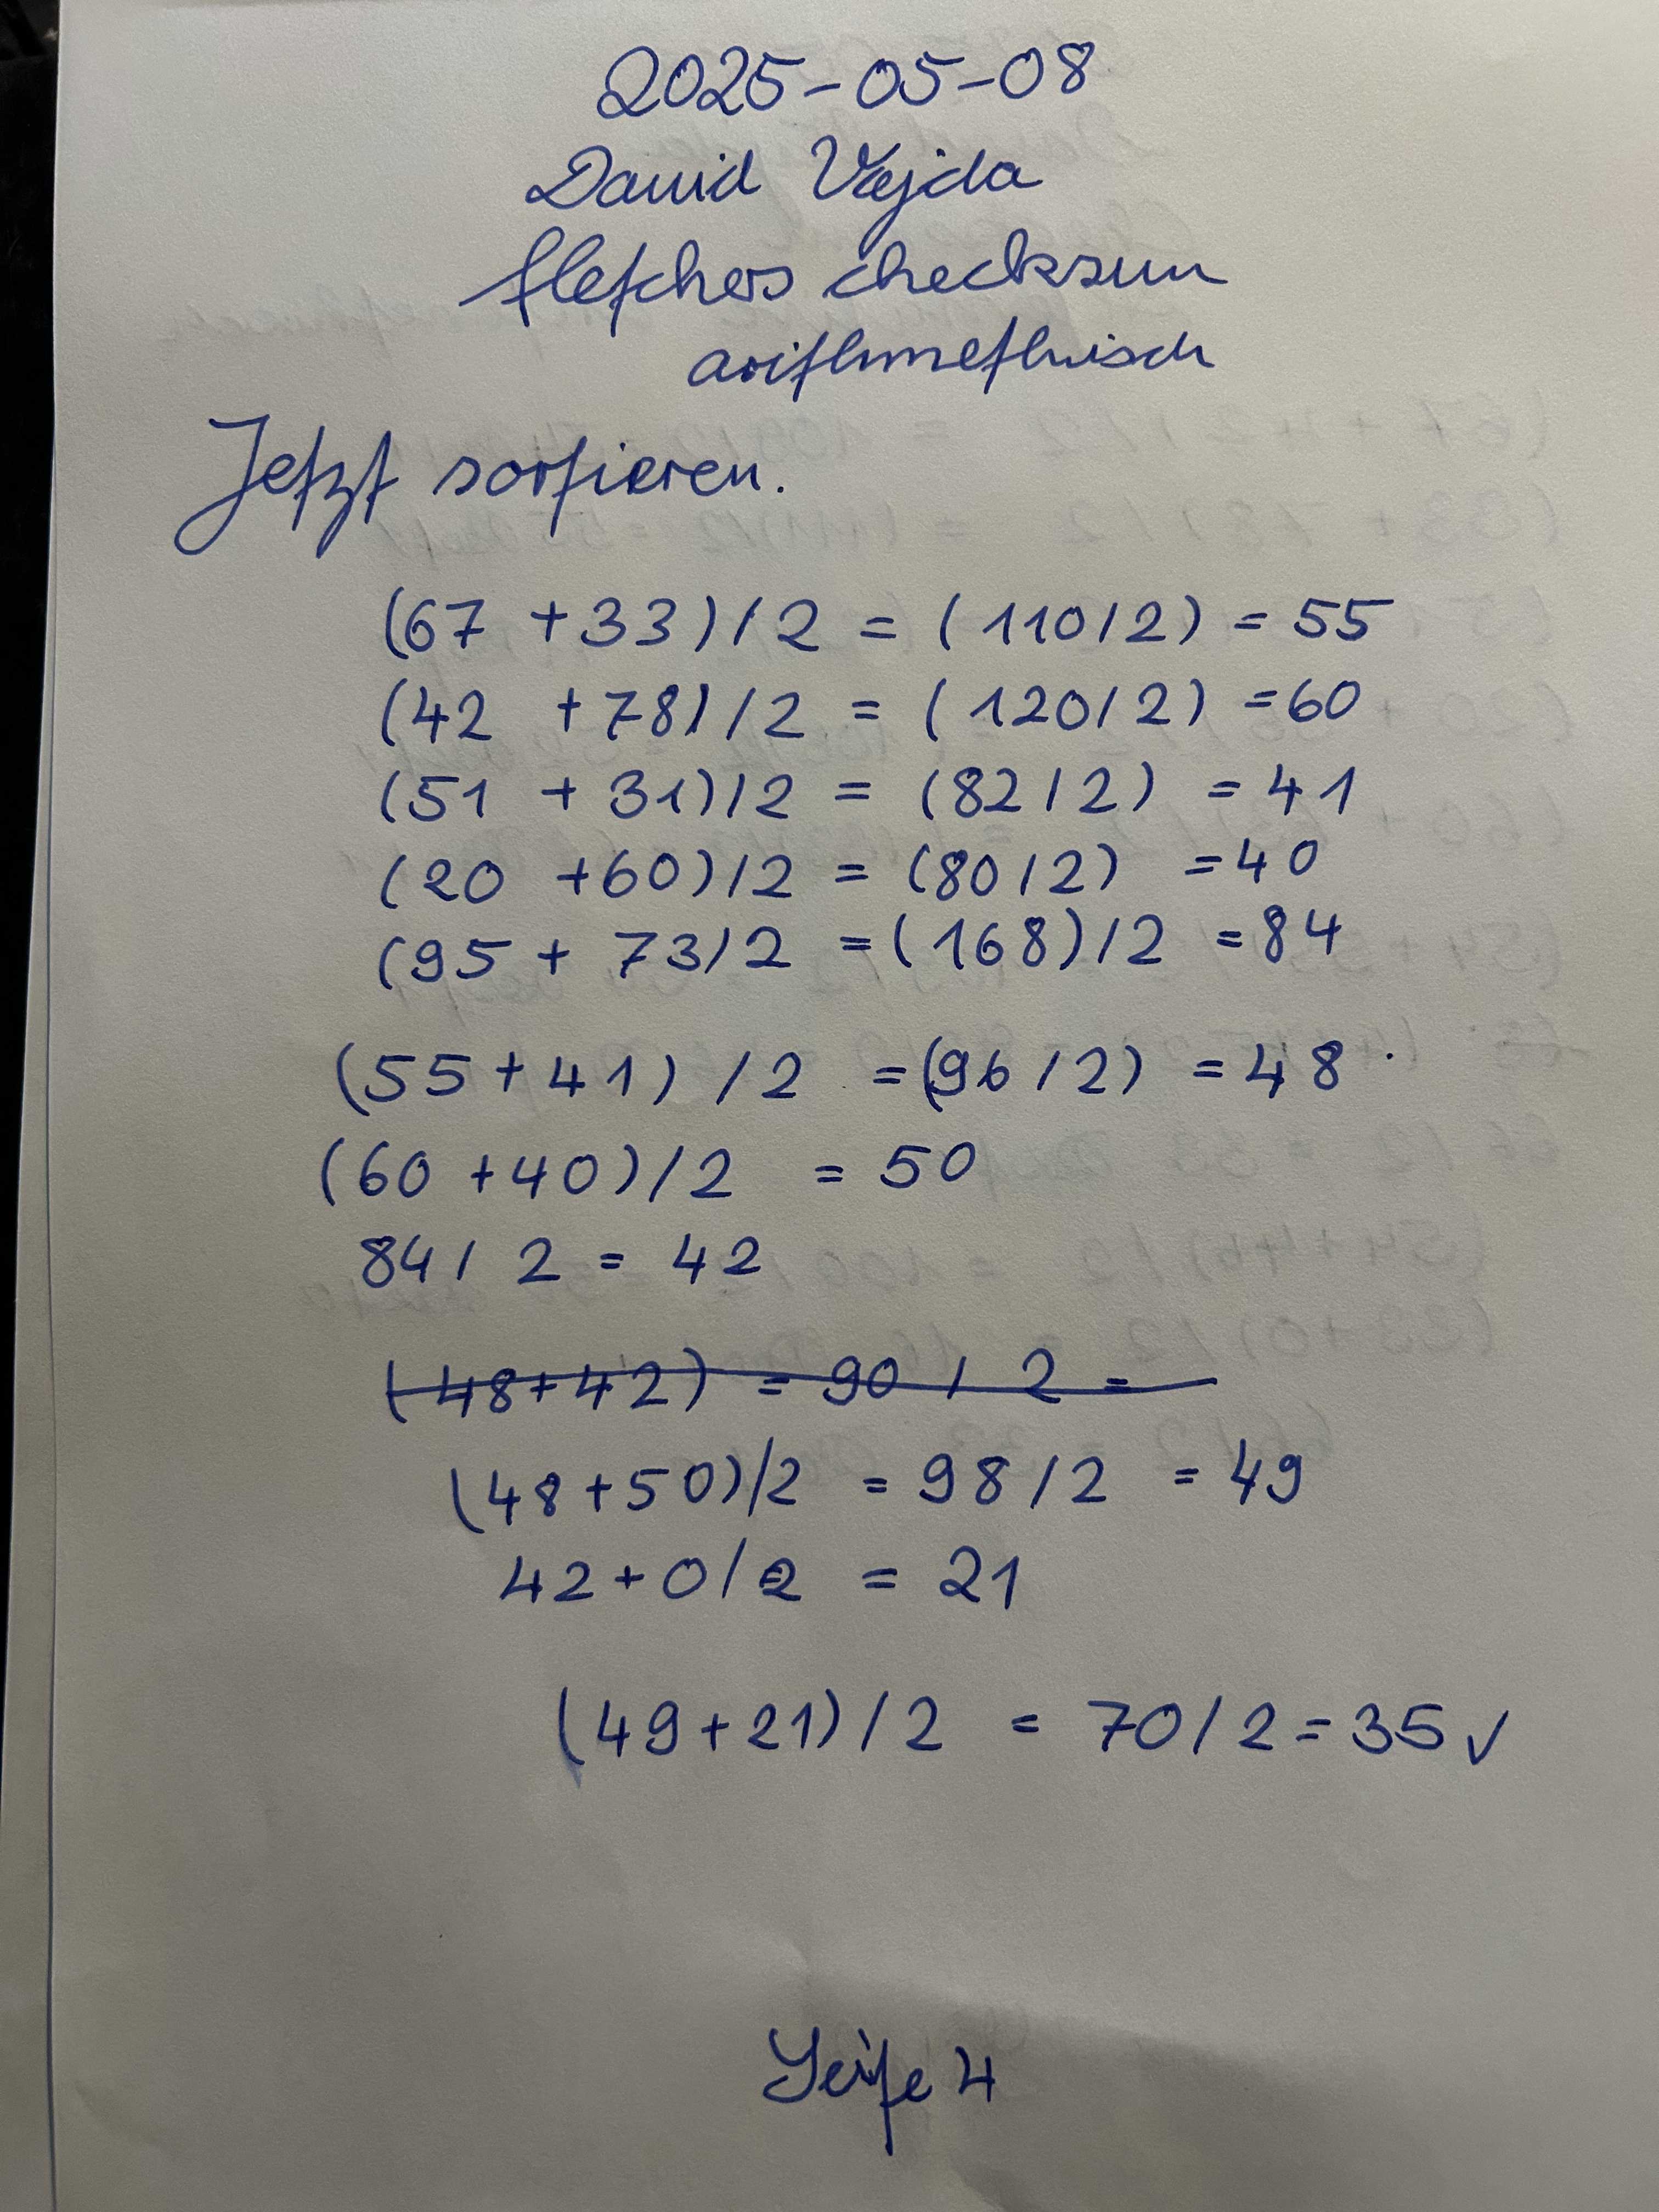 2025-05-08
David Vajda
fletchers checksum
arithmethisch
Jetzt sortieren.
(67 + 33) / 2 = (110/2) = 55
(42 + 78) / 2 = (120/2) = 60
(51 + 31) / 2 = (82/2) = 41
(20 + 60) / 2 = (80/2) = 40
(95 + 73/2 = (168)/2 = 84
(55 + 41) / 2 = (96/2) = 48
(60 + 40) / 2 = 50
84 / 2 = 42
(48+42) = 90 / 2 =
(48+50)/2 = 98/2 = 49
42+0/2 = 21
(49+21)/2 = 70/2 = 35 ✓
Seite 4